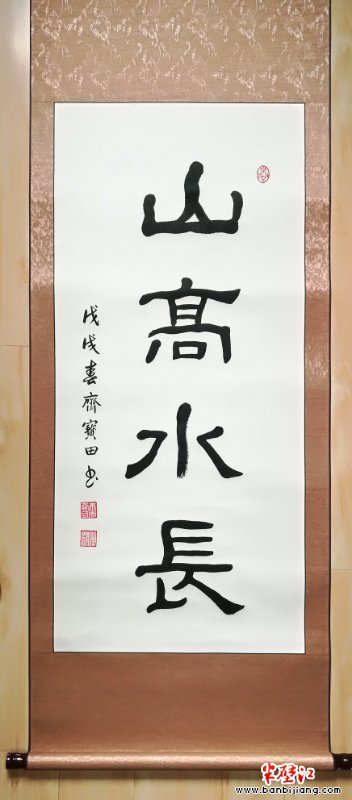 山高水長
戊戌春齊寶田书
半壁江
www.banbijiang.com